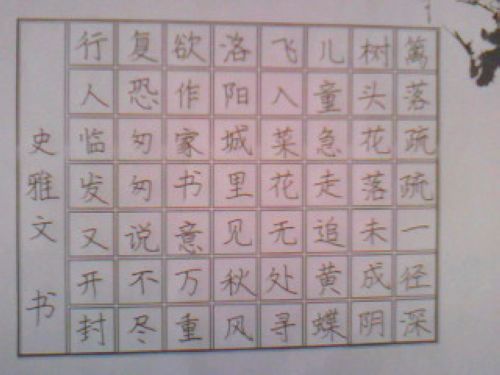 篱落疏疏一径深
树头花落未成阴
儿童急走追黄蝶
飞入菜花无处寻
洛阳城里见秋风
欲作家书意万重
复恐匆匆说不尽
行人临发又开封
史雅文 书